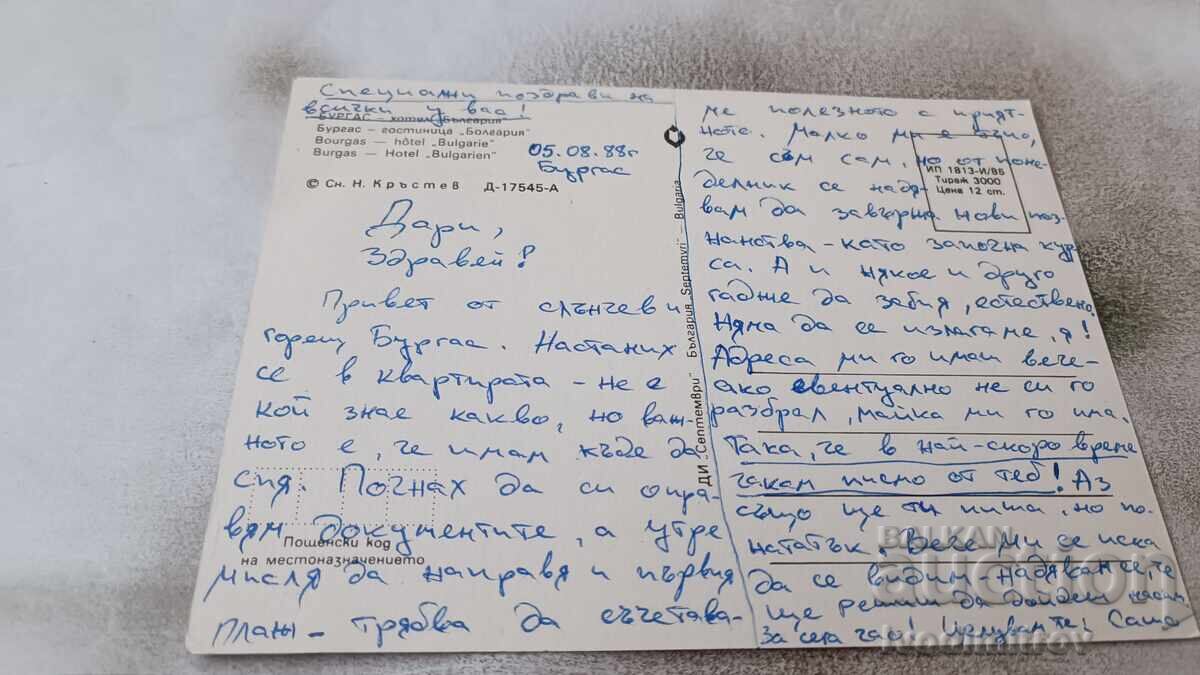 Специални поздрави на
всички у вас!
БУРГАС – хотел „България"
Бургас – гостиница „Болгария"
Bourgas – hôtel „Bulgarie"
Burgas – Hotel „Bulgarien"
05.08.88г
Бургас
© Сн. Н. Кръстев Д-17545-А
Дари,
Здравей!
Привет от слънчев и
горещ Бургас. Настаних
се в квартирата – не е
кой знае какво, но важ-
ното е, че имам къде да
спя. Почнах да си опра-
вям документите, а утре
мисля да направя и първия
плаж – трябва да съчетава-
Пощенски код
на местоназначението
ДИ „Септември" България „Septemvri" – Bulgaria
ме полезното с прият-
ното. Малко ми е
че съм сам, но от поне-
делник се надя-
вам да завържа нови поз-
нанства – като започна кур-
са. А и някое и друго
гадже да забия, естествено.
Няма да се излагаме, я!
Адреса ми го имаш вече –
ако евентуално не си го
разбрал, майка ми го има.
Така, че в най-скоро време
чакам писмо от теб! Аз
също ще ти пиша, но по-
нататък. Вече ми се иска
да се видим – надявам се, че
ще решиш да дойдеш насам.
За сега чао! Целувките! Сашо
ИП 1813-И/86
Тираж 3000
Цена 12 ст.
BALKAN
auction
luboDimitrov